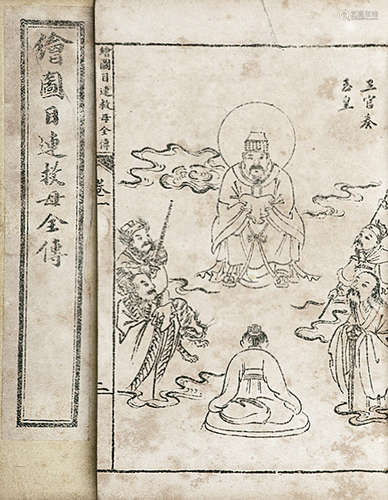 繪圖目連救母全傳
繪圖目連救母全傳
卷一
二
王官奏
玉皇